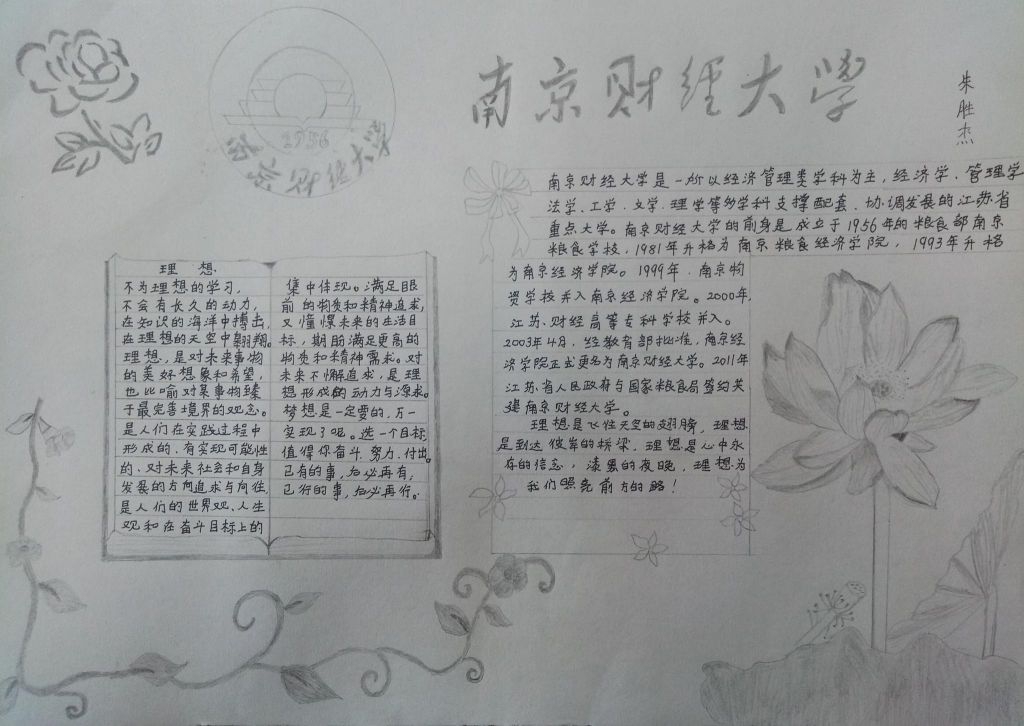 南京财经大学
朱胜杰
1956
南京财经大学
南京财经大学是一所以经济管理类学科为主,经济学、管理学
法学、工学、文学、理学等多学科支撑配套、协调发展的江苏省
重点大学。南京财经大学的前身是成立于1956年的粮食部南京
粮食学校,1981年升格为南京粮食经济学院,1993年升格
为南京经济学院。1999年,南京物
资学校并入南京经济学院。2000年,
江苏财经高等专科学校并入。
2003年4月,经教育部批准,南京经
济学院正式更名为南京财经大学。2011年
江苏省人民政府与国家粮食局签约共
建南京财经大学。
理想是飞往天空的翅膀,理想
是到达彼岸的桥梁,理想是心中永
存的信念,漆黑的夜晚,理想为
我们照亮前方的路!
理想
不为理想的学习,
不会有长久的动力,
在知识的海洋中搏击,
在理想的天空中翱翔。
理想,是对未来事物
的美好想象和希望,
也比喻对某事物臻
于最完善境界的观念。
是人们在实践过程中
形成的、有实现可能性
的、对未来社会和自身
发展的方向追求与向往,
是人们的世界观、人生
观和在奋斗目标上的
集中体现。满足眼
前的物质和精神追求,
又憧憬未来的生活目
标,期盼满足更高的
物质和精神需求。对
未来不懈追求,是理
想形成的动力与源泉。
梦想是一定要的,万一
实现了呢。选一个目标,
值得你奋斗、努力、付出。
已有的事,后必再有;
已行的事,后必再行。